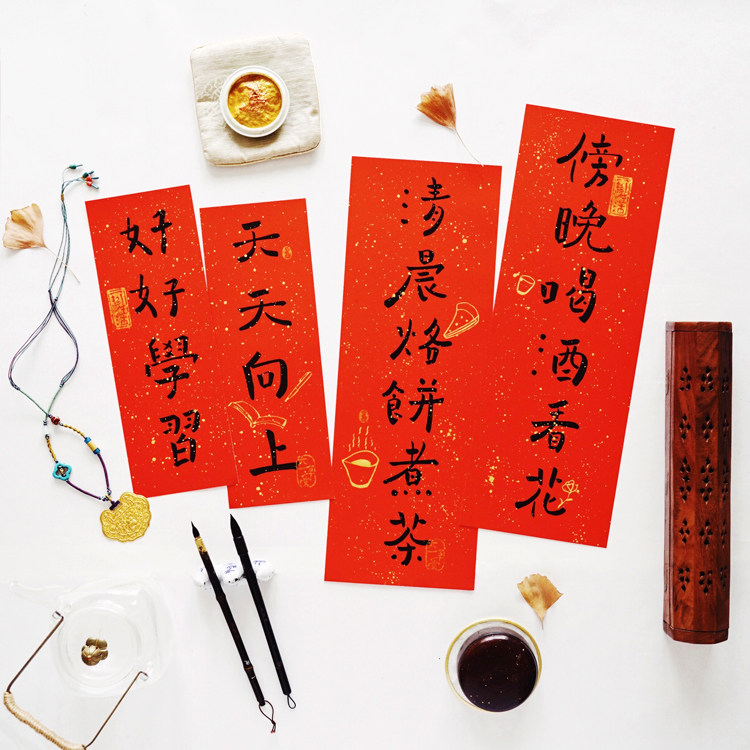 好好學習
天天向上
清晨烙餅煮茶
傍晚喝酒看花